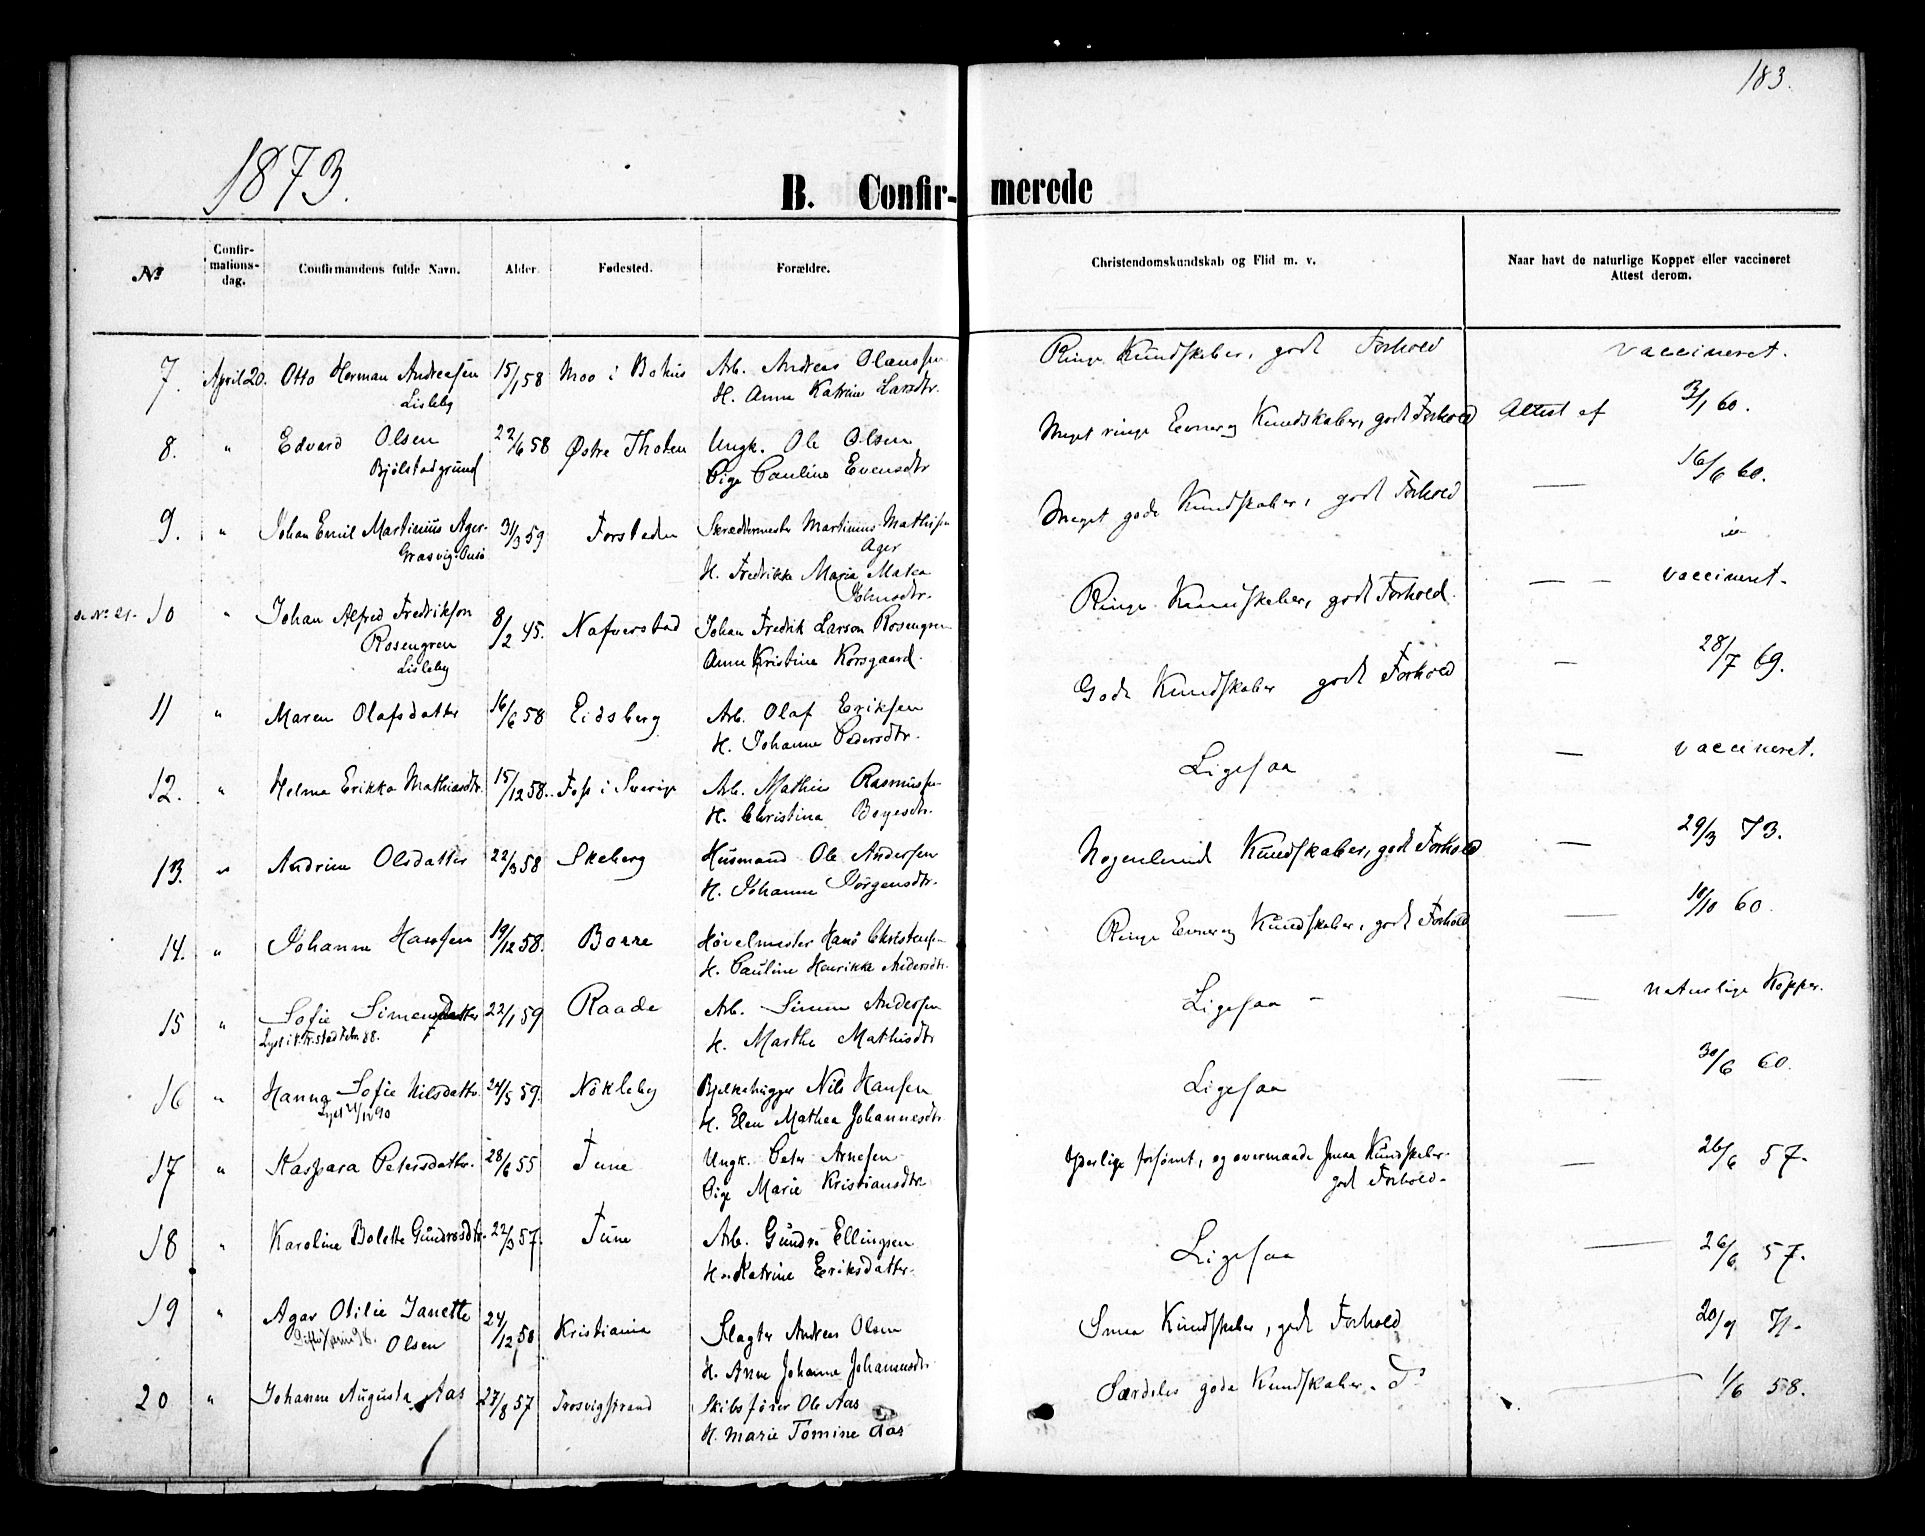 183.
1873.
B. Confir- merede
No
Confir-
mations-
dag.
Confirmandens fulde Navn.
Alder.
Fødested.
Forældre.
Christendomskundskab og Flid m. v.
Naar havt de naturlige Kopper eller vaccineret
Attest derom.
7. April 20. Otto Herman Andreasen 15/1 58 Moo i Bohus Arb. Andreas Olaussen Ringe Kundskaber, godt Forhold vaccineret.
Lisleby H. Anne Katrine Larsdtr.
8. " Edvard Olsen 22/6 58 Østre Thoten Ungk. Ole Olsen Meget ringe Evner og Kundskaber, godt Forhold Attest af 3/1 60.
Bjölstadgrund Pige Pauline Evensdtr
9. " Johan Emil Martinius Ager 31/3 59 Forstaden Skrædermester Martinius Mathisen Meget gode Kundskaber, godt Forhold — 16/6 60.
Græsvig Onsö Ager
H. Fredrikke Maria Matea
Johnsdtr.
se No 21. 10 " Johan Alfred Fredrikson 8/2 45. Nafverstad Johan Fredrik Larson Rosengren Ringe Kundskaber, godt Forhold. — vaccineret.
Rosengren Anna Kristina Korsgaard.
Lisleby
11 " Maren Olafsdatter 16/6 58 Eidsberg Arb. Olaf Eriksen Gode Kundskaber godt Forhold — 28/7 69.
H. Johanne Pedersdtr.
12. " Helma Erikka Mathiasdtr. 15/12 58. Foss i Sverige Arb. Mathias Rasmussen Ligesaa — vaccineret.
H. Christina Boyesdtr.
13. " Andrine Olsdatter 22/3 58 Skeberg Husmand Ole Andersen Nogenlunde Kundskaber, godt Forhold — 29/3 73.
H. Johanne Jörgensdtr.
14. " Johanne Hansen 19/12 58. Borre Høvelmester Hans Christensen Ringe Evner og Kundskaber, godt Forhold — 10/10 60.
H. Pauline Henrikke Andersdtr.
15 " Sofie Simensdatter 22/1 59 Raade Arb. Simen Andersen Ligesaa — naturlige Kopper.
Lyst i Fr.stad febr. 88. H. Marthe Mathisdtr
16 " Hanna Sofie Nilsdatter 24/5 59. Nökleby Bjelkehugger Nils Hansen Ligesaa — 30/6 60.
Lyst 21/12 90 H. Elen Mathea Johannesdtr
17 " Kaspara Petersdatter. 28/6 55 Tune Ungk. Peter Arnesen Yderlige forsömt, og overmaade smaa Kundskaber — 26/6 57.
Pige Marie Kristiansdtr. godt Forhold.
18 " Karoline Bolette Gundrosdtr. 22/3 57. Tune Arb. Gundro Ellingsen Ligesaa — 26/6 57.
H. Katrine Eriksdatter.
19 " Agar Otilie Janette 24/12 58 Kristiania Slagter Andreas Olsen Smaa Kundskaber, godt Forhold 20/9 71.
Olsen H. Anne Johanne Johannesdtr.
20 " Johanne Augusta Aas 27/8 57 Trosvigstrand Skibsfører Ole Aas Særdeles gode Kundskaber. Do — 1/6 58.
H. Marie Tomine Aas